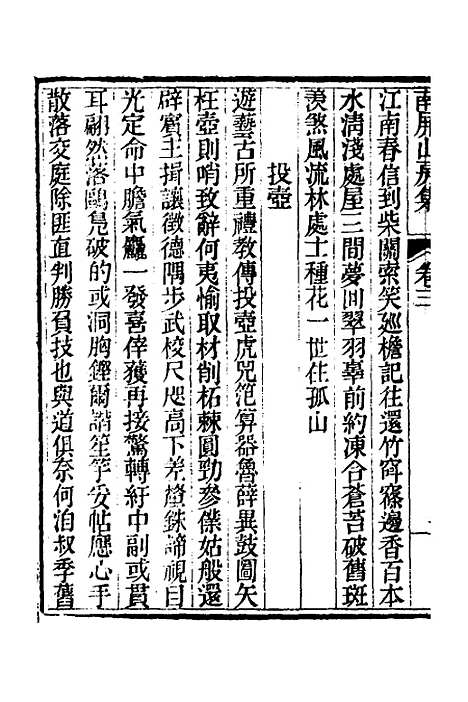 南屏山房集 卷三
江南春信到柴關索笑巡檐記往還竹窣籬邊香百本
水清淺處屋三間夢回翠羽辜前約凍合蒼苔破舊斑
羨煞風流林處士種花一世住孤山
投壺
遊藝古所重禮教傳投壺虎兕笵算器魯薛異鼓圖矢
枉壺則哨致辭何夷愉取材削柘棘圓勁參㒒姑般還
辟賓主揖讓徵德隅步武校尺咫高下差鐙銖諦視目
光定命中膽氣麤一發喜倖獲再接驚轉紆中副或貫
耳翩然落鷗鳧破的或洞胸鏗爾諧笙竽妥帖應心手
散落交庭除匪直判勝負技也與道俱奈何洎叔季舊